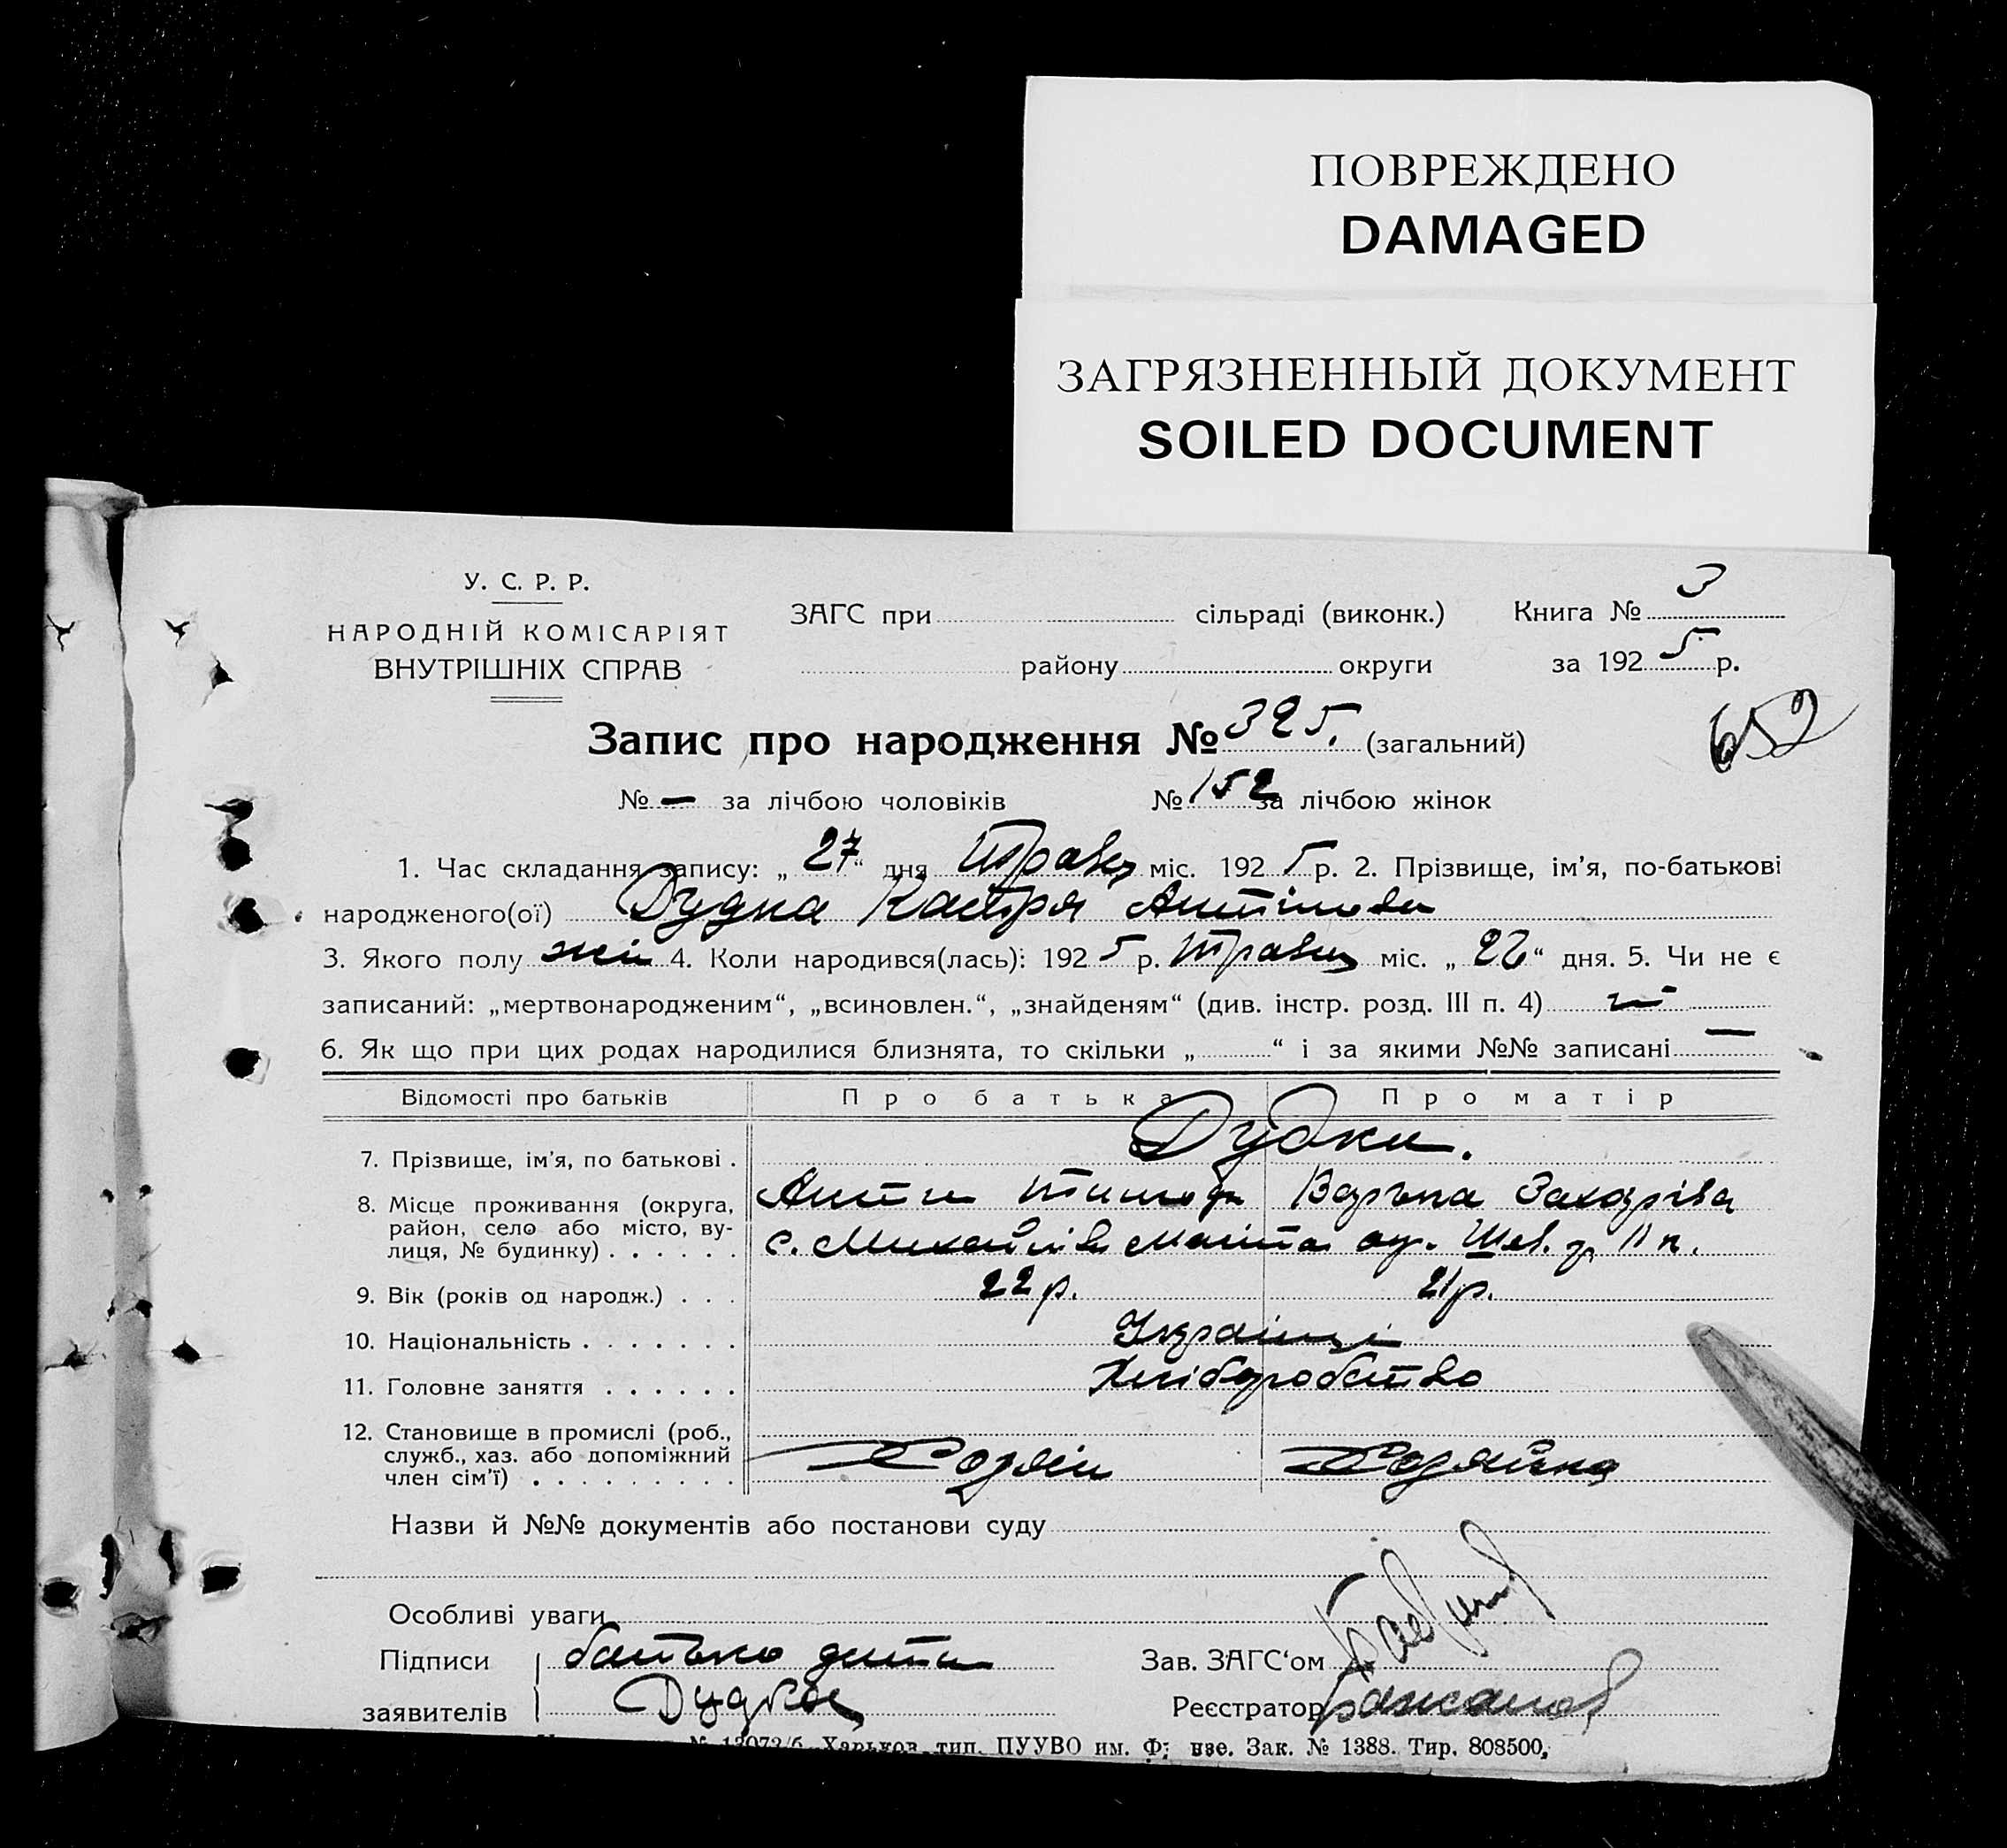 ПОВРЕЖДЕНО
DAMAGED
ЗАГРЯЗНЕННЫЙ ДОКУМЕНТ
SOILED DOCUMENT
У. С. Р. Р.
НАРОДНІЙ КОМІСАРІЯТ
ВНУТРІШНІХ СПРАВ
ЗАГС при сільраді (виконк.) Книга № 3
району округи за 1925 р.
652
Запис про народження № 325. (загальний)
№ — за лічбою чоловіків № 152 за лічбою жінок
1. Час складання запису: „27“ дня травц міс. 1925 р. 2. Прізвище, ім'я, по-батькові
народженого(ої) Дудка Катря Антіпова
3. Якого полу жін 4. Коли народився(лась): 1925 р. травц міс. „26“ дня. 5. Чи не є
записаний: „мертвонародженим“, „всиновлен.“, „знайденям“ (див. інстр. розд. III п. 4)
6. Як що при цих родах народилися близнята, то скільки „ “ і за якими №№ записані —
Відомості про батьків Про батька Про матір
7. Прізвище, ім'я, по батькові . Дудки.
Антип Варька Захарівa
8. Місце проживання (округа,
район, село або місто, ву-
лиця, № будинку) . . . . . . с. Михайлівка
9. Вік (років од народж.) . . . 22 р. 21 р.
10. Національність . . . . . . . Українці
11. Головне заняття . . . . . . Хліборобство
12. Становище в промислі (роб.,
служб., хаз. або допоміжний
член сім'ї) . . . . . . . . . Хозяїн Хозяйка
Назви й №№ документів або постанови суду
Особливі уваги
Підписи батько дити Зав. ЗАГС'ом
заявителів Дудка Реєстратор Бажанов
№ 13073/б. Харьков, тип. ПУУВО им. Зак. № 1388. Тир. 808500,